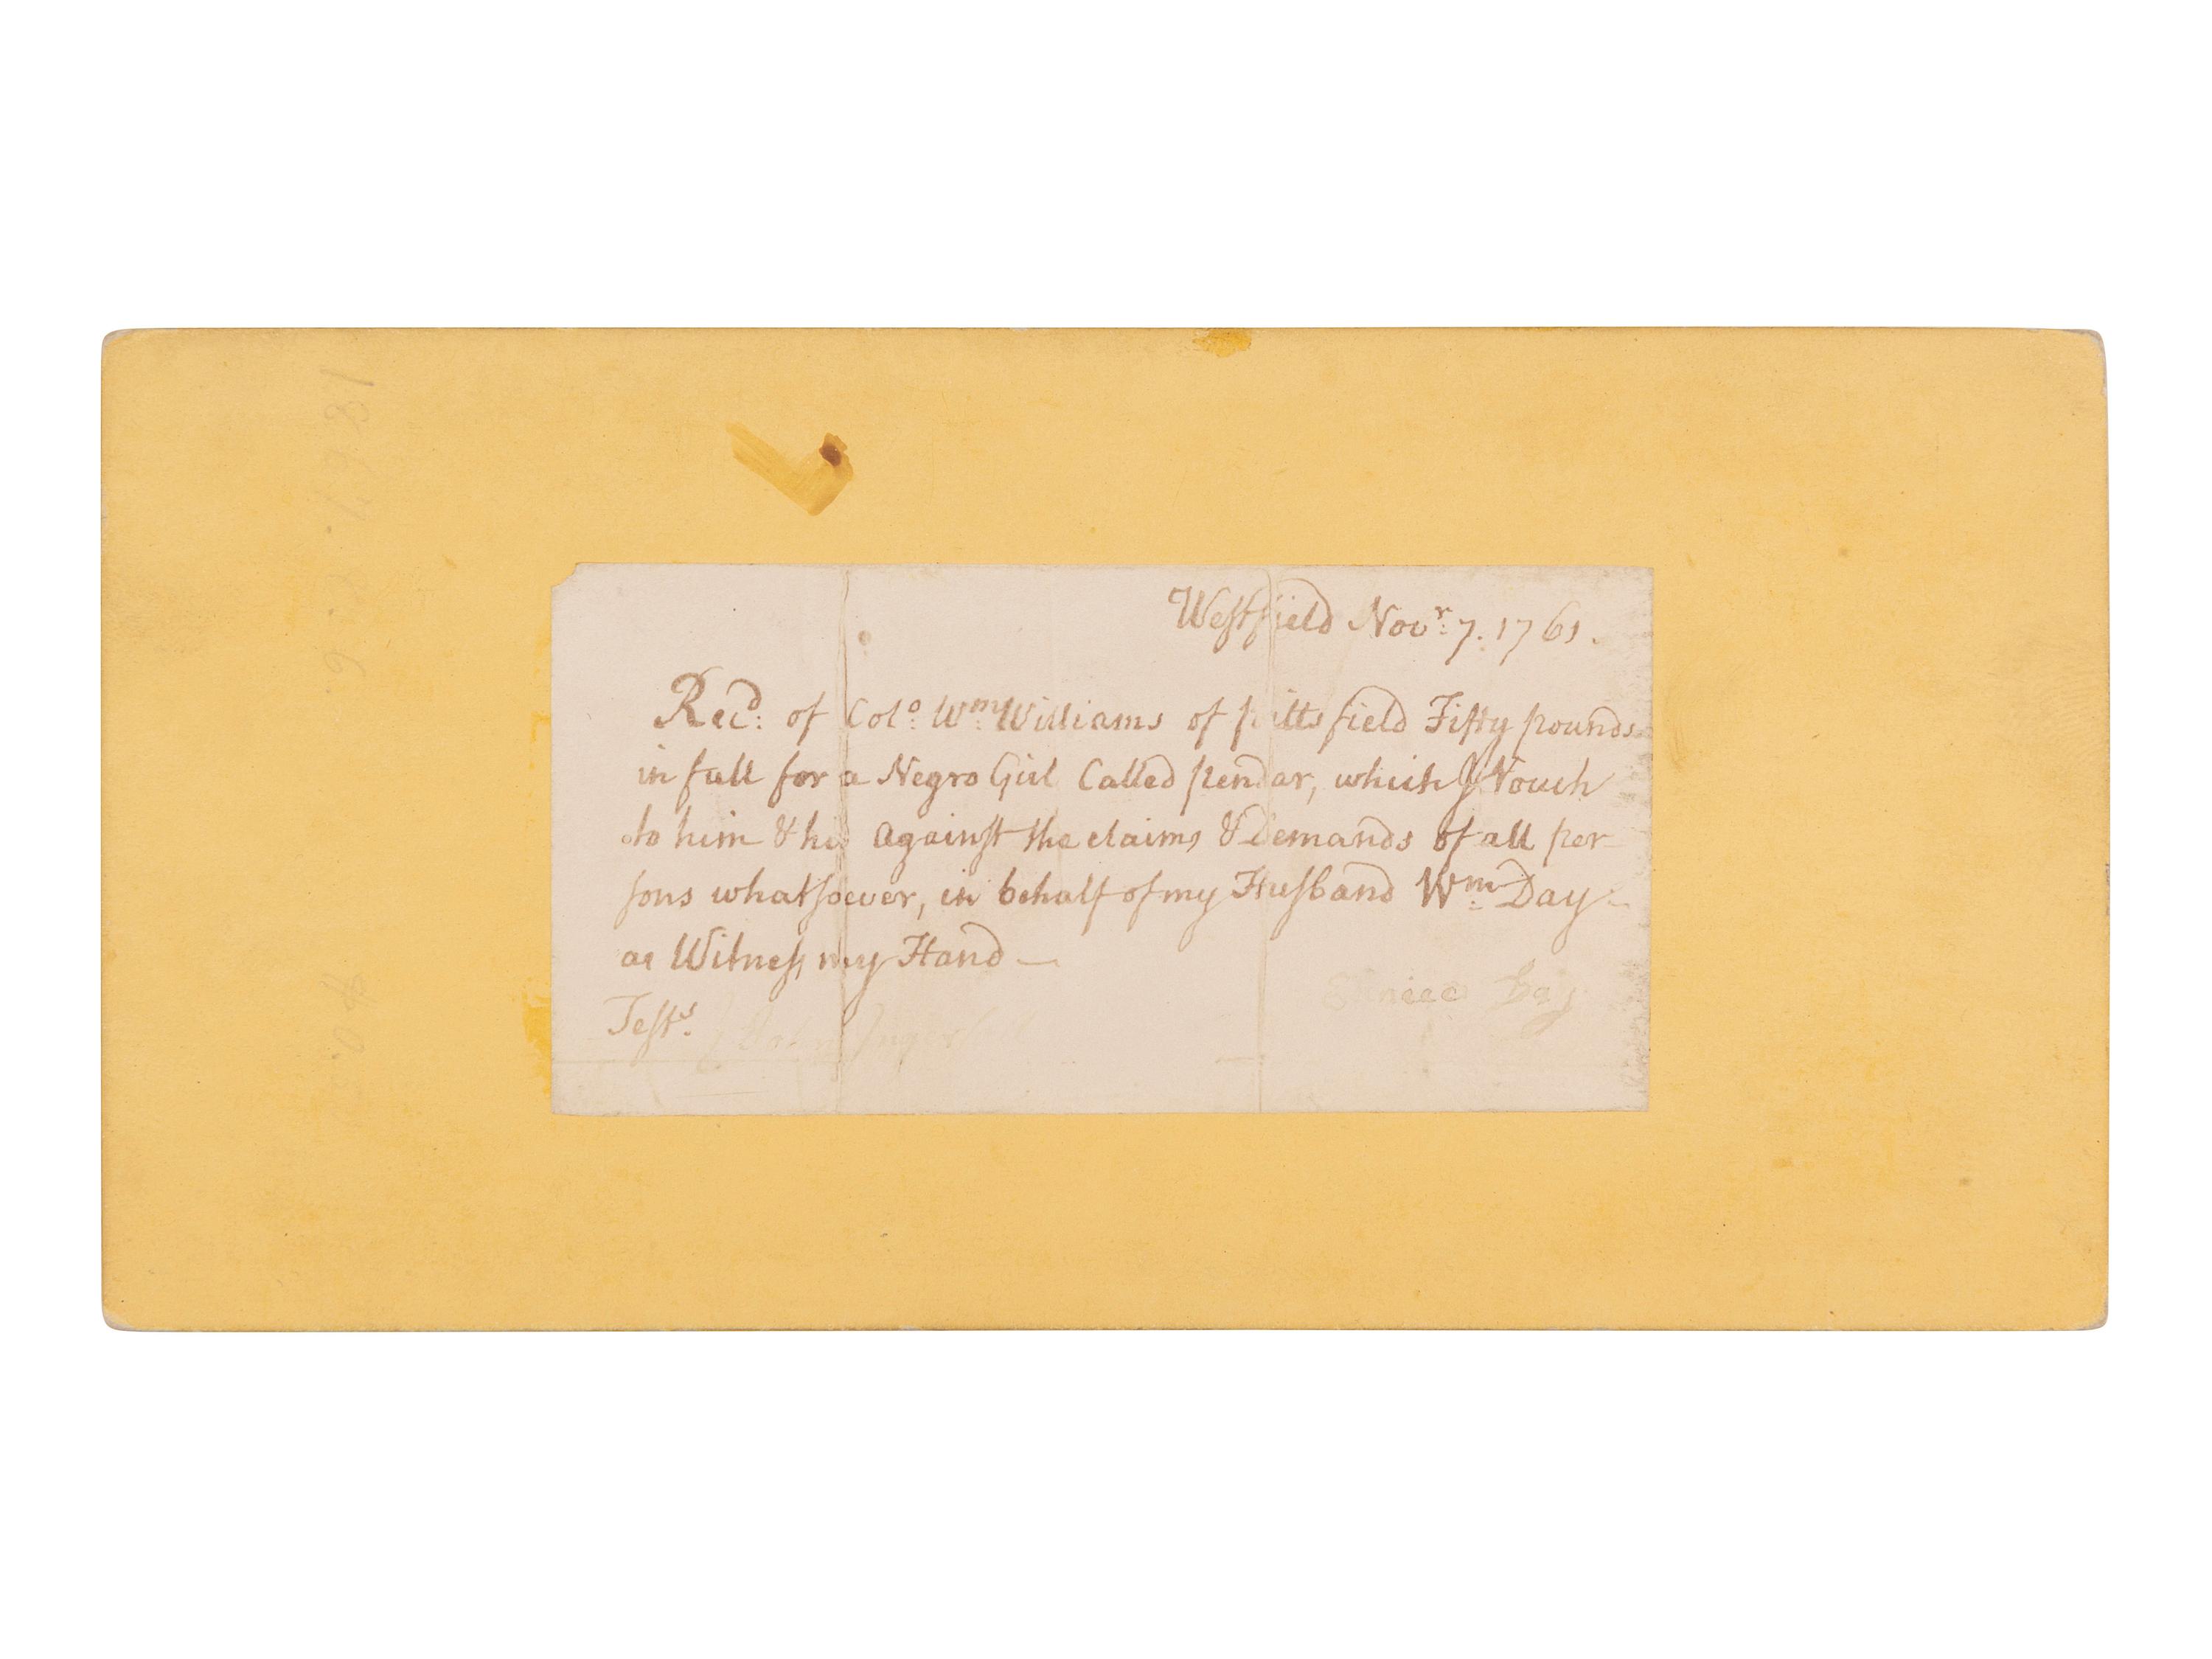 Westfield Novr. 7. 1761.
Recd. of Colo. Wm. Williams of pittsfield Fifty pounds
in full for a Negro Girl Called pendar, which I Vouch
to him & his against the claims & Demands of all per
sons whatsoever, in behalf of my Husband Wm. Day
as Witness my Hand —
Day
Tests.